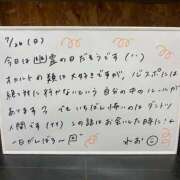 7/26 (日)
今日は幽霊の日だそうです(・・)
オカルトの類は大好きですが、心スポには
絶対に行かないという自分の中のルールが
あります。でもいちばん怖いのはダントツ
人間です(TT) この話はお会いした時に!+
一日がんばろ〜
れお